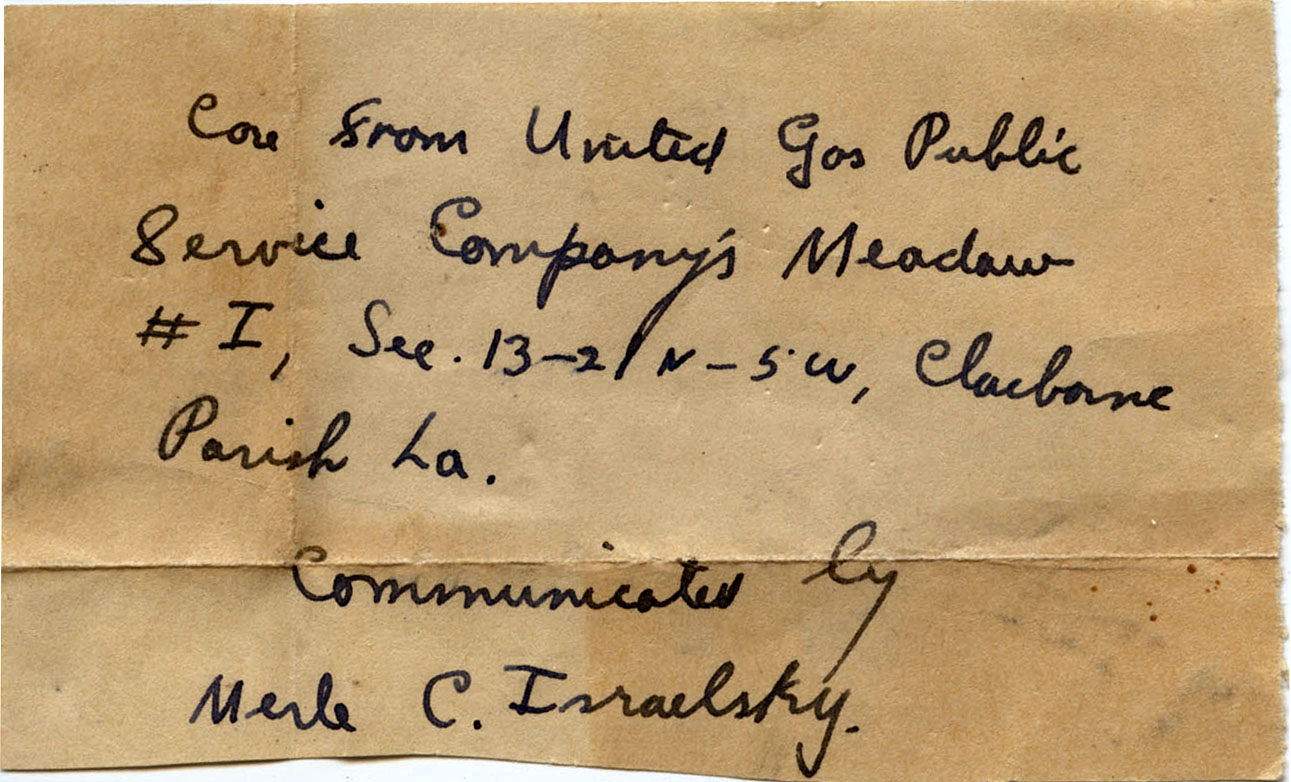 Core from United Gas Public
Service Company's Meadaw
# I, Sec. 13-21N-5W, Claiborne
Parish La.
Communicated by
Merle C. Israelsky.